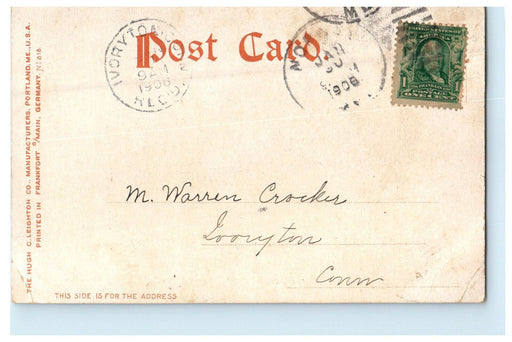 Post Card.
IVORYTON
9 AM
1906
1906
ONE CENT
THE HUGH C. LEIGHTON CO., MANUFACTURERS, PORTLAND, ME., U.S.A.
PRINTED IN FRANKFORT O/MAIN, GERMANY.
M. Warren Crocker
Ivoryton
Conn
THIS SIDE IS FOR THE ADDRESS